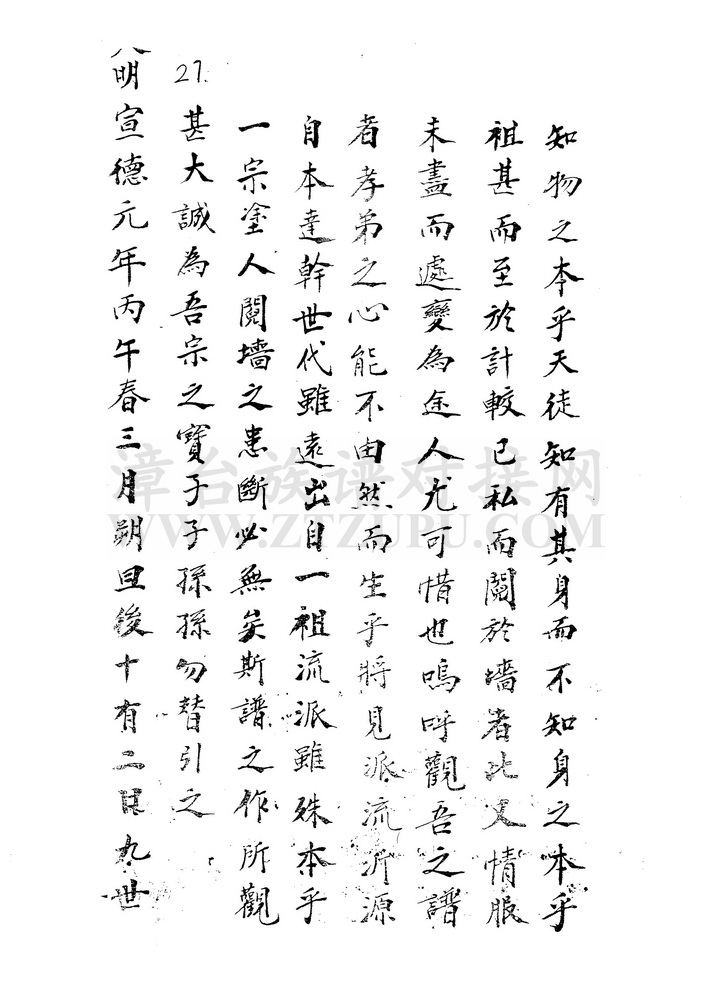 知物之本乎天徒知有其身而不知身之本乎
祖甚而至於計較已私而鬩於墻者比又情服
未盡而遽變為途人尤可惜也嗚呼觀吾之譜
者孝弟之心能不由然而生乎將見派流沂源
自本達幹世代雖遠出自一祖流派雖殊本乎
一宗塗人鬩墻之患斷必無矣斯譜之作所觀
甚大誠為吾宗之寶子子孫孫勿替引之
27.
明宣德元年丙午春三月朔旦後十有二日九世
漳台族谱对接网
WWW.ZTZUPU.COM